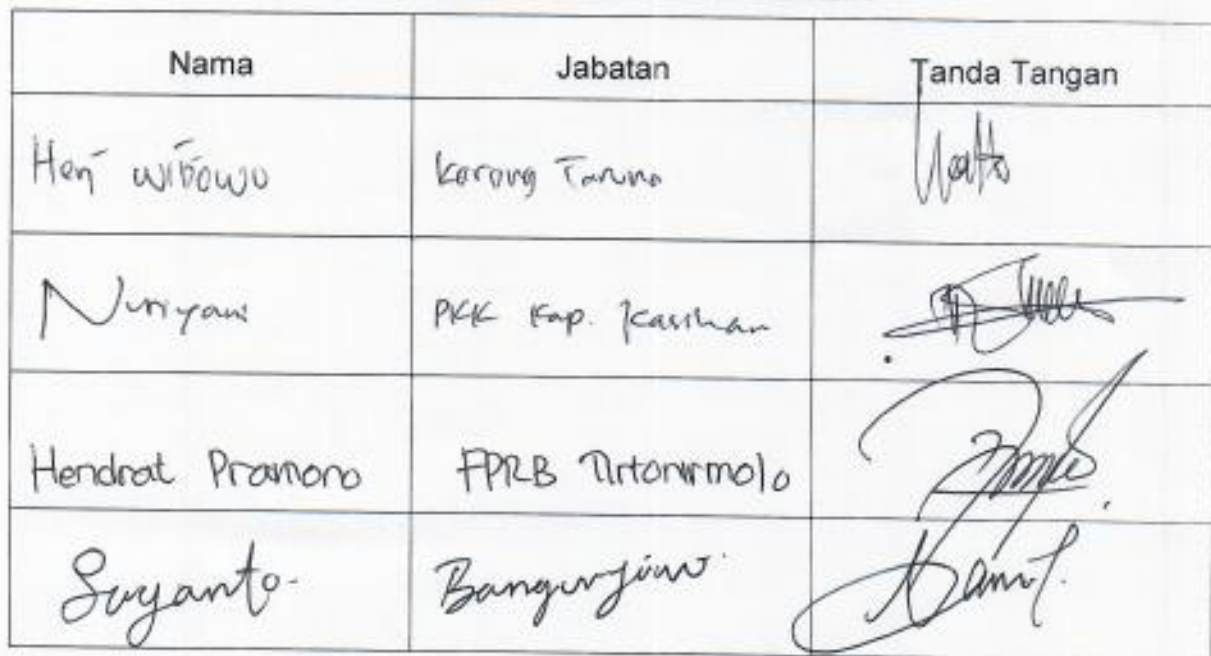 Nama Jabatan Tanda Tangan
Heri Wibowo Karang Taruna
Nuriyani PKK Kap. Kasihan
Hendrat Pramono FPRB Tirtonirmolo
Suyanto. Bangunjiwo